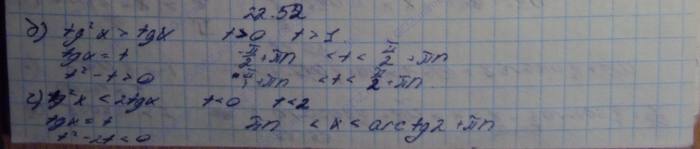 22.52
б) tg²x > tgx t>0 t>1
tgx = t -π/2+πn <t< π/2 +πn
t²-t>0 π/4+πn <t< π/2+πn
г) tg²x < 2tgx t<0 t<2
tgx = t πn < x < arctg2 +πn
t²-2t<0